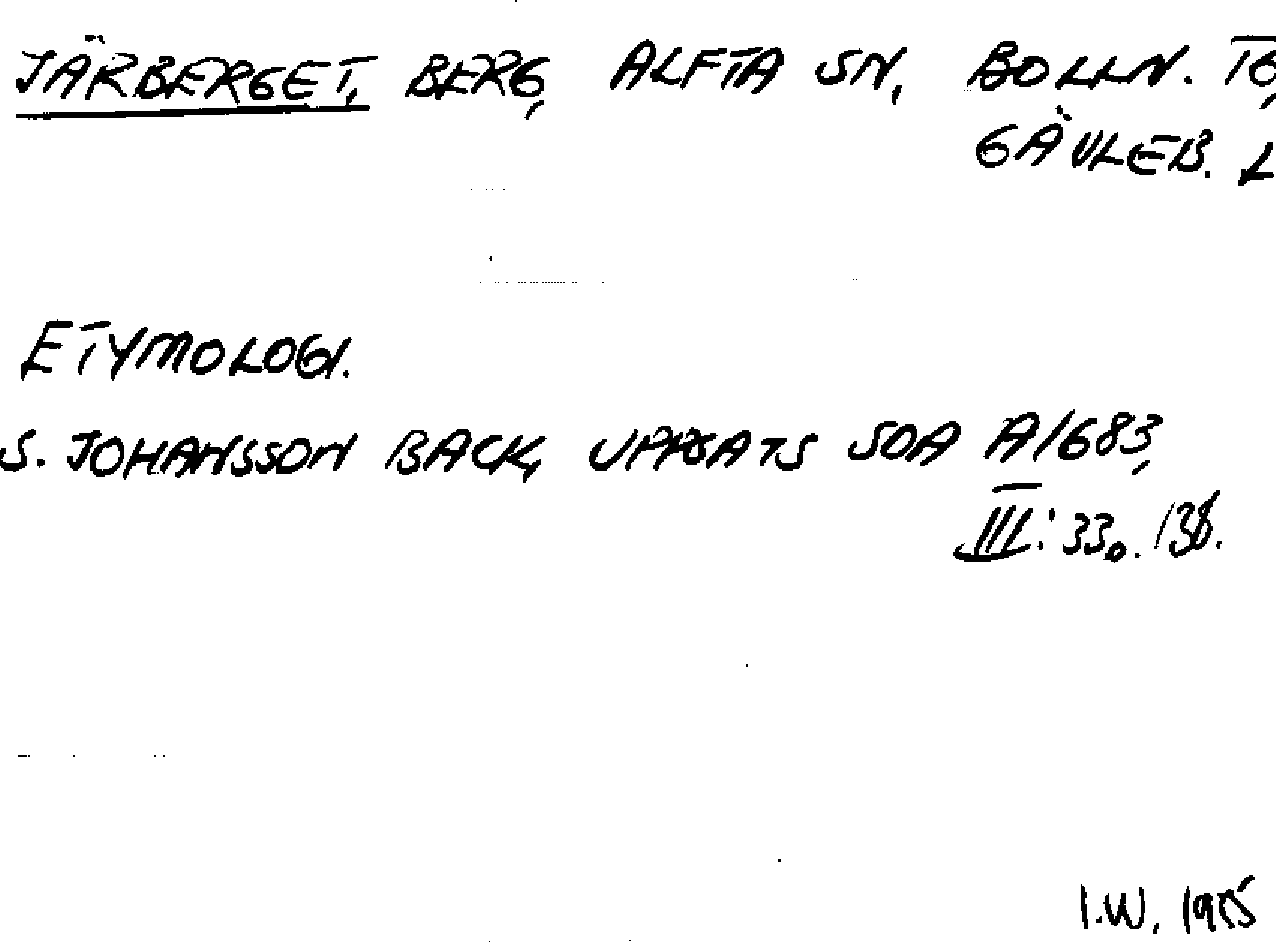 JÄRBERGET, BERG, ALFTA SN, BOLLN. TG,
GÄVLEB. L
ETYMOLOGI.
S. JOHANSSON BACK, UPPSATS SOA A1683,
III: 33 o. 138.
I.W. 1985